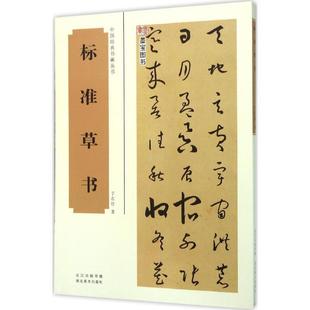 中国经典书画丛书
标准草书
于右任 书
长江出版传媒
湖北美术出版社
天地玄黄宇宙洪荒
日月盈昃辰宿列张
寒来暑往秋收冬藏